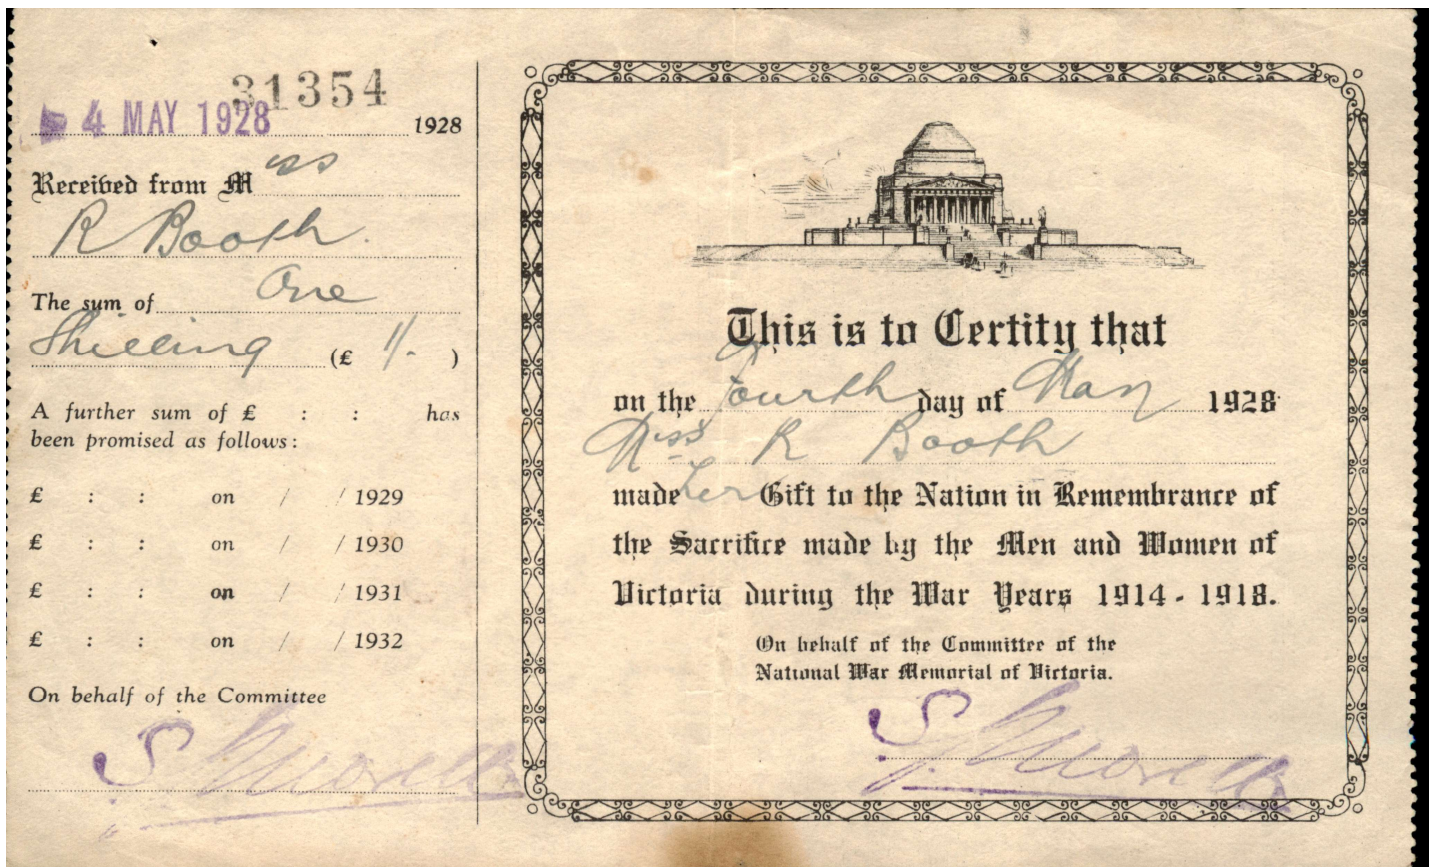 31354
4 MAY 1928 1928
Received from Miss
R Booth.
The sum of One
Shilling (£ 1/- )
A further sum of £ : : has
been promised as follows:
£ : : on / / 1929
£ : : on / / 1930
£ : : on / / 1931
£ : : on / / 1932
On behalf of the Committee
This is to Certity that
on the Fourth day of May 1928
Miss R Booth
made her Gift to the Nation in Remembrance of
the Sacrifice made by the Men and Women of
Victoria during the War Years 1914 - 1918.
On behalf of the Committee of the
National War Memorial of Victoria.